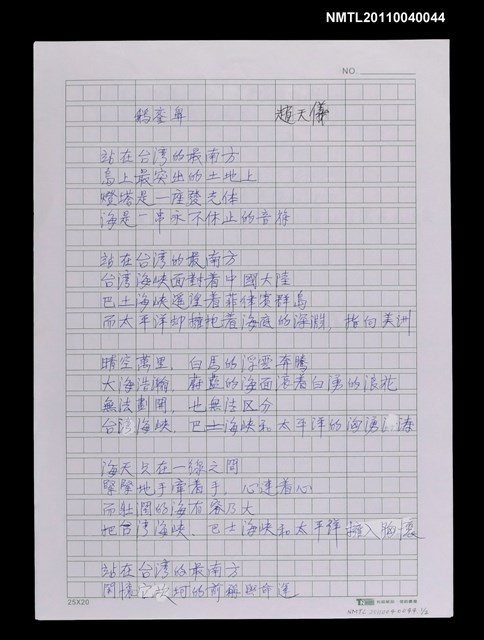 NMTL20110040044
NO.
鵝鑾鼻 趙天儀
站在台湾的最南方
島上最突出的土地上
燈塔是一座發光体
海是一串永不休止的音符
站在台湾的最南方
台湾海峡面對着中國大陸
巴士海峡遥望着菲律賓群島
而太平洋却擁抱着海底的深淵，指向美洲
晴空萬里，白馬的浮雲奔騰
大海浩瀚，蔚藍的海面滾着白湧的浪花
無法劃開，也無法区分
台湾海峡，巴士海峡和太平洋的海湧
海天只在一線之間
緊緊地手牽着手，心連着心
而壯闊的海有容乃大
把台湾海峡、巴士海峡和太平洋擁入胸懷
站在台湾的最南方
関懷坎坷的前程與命運
25X20
NMTL20110040044 1/2